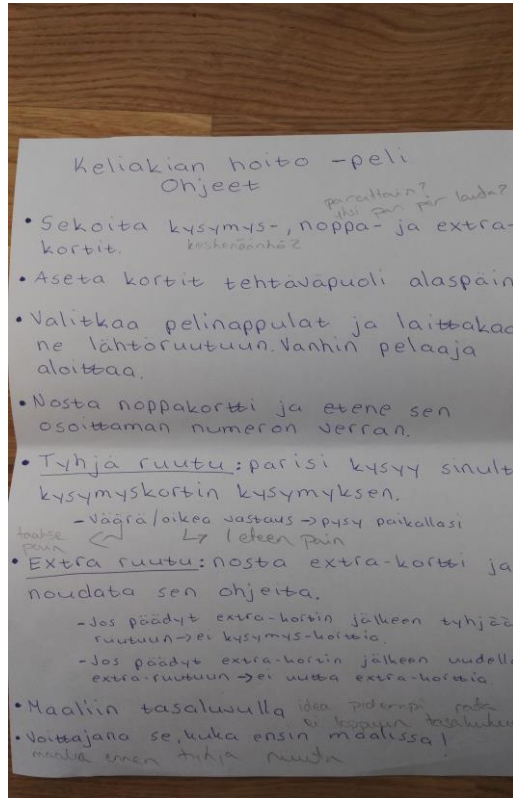 Keliakian hoito -peli
Ohjeet
parettain?
yksi pari per lauta?
• Sekoita kysymys-, noppa- ja extra-
kortit. keskenäänkö?
• Aseta kortit tehtäväpuoli alaspäin
• Valitkaa pelinappulat ja laittakaa
ne lähtöruutuun. Vanhin pelaaja
aloittaa.
• Nosta noppakortti ja etene sen
osoittaman numeron verran.
• Tyhjä ruutu: parisi kysyy sinult
kysymyskortin kysymyksen.
- Väärä/oikea vastaus → pysy paikallasi
taakse
päin
1 eteen päin
• Extra ruutu: nosta extra-kortti ja
noudata sen ohjeita.
- Jos päädyt extra-kortin jälkeen tyhjää
ruutuun → ei kysymys-korttia.
- Jos päädyt extra-kortin jälkeen uudella
extra-ruutuun → ei uutta extra-korttia.
• Maaliin tasaluvulla idea pidempi rata
ei loppuun tasaluku
• Voittajana se, kuka ensin maalissa!
ennen tyhjä ruutu